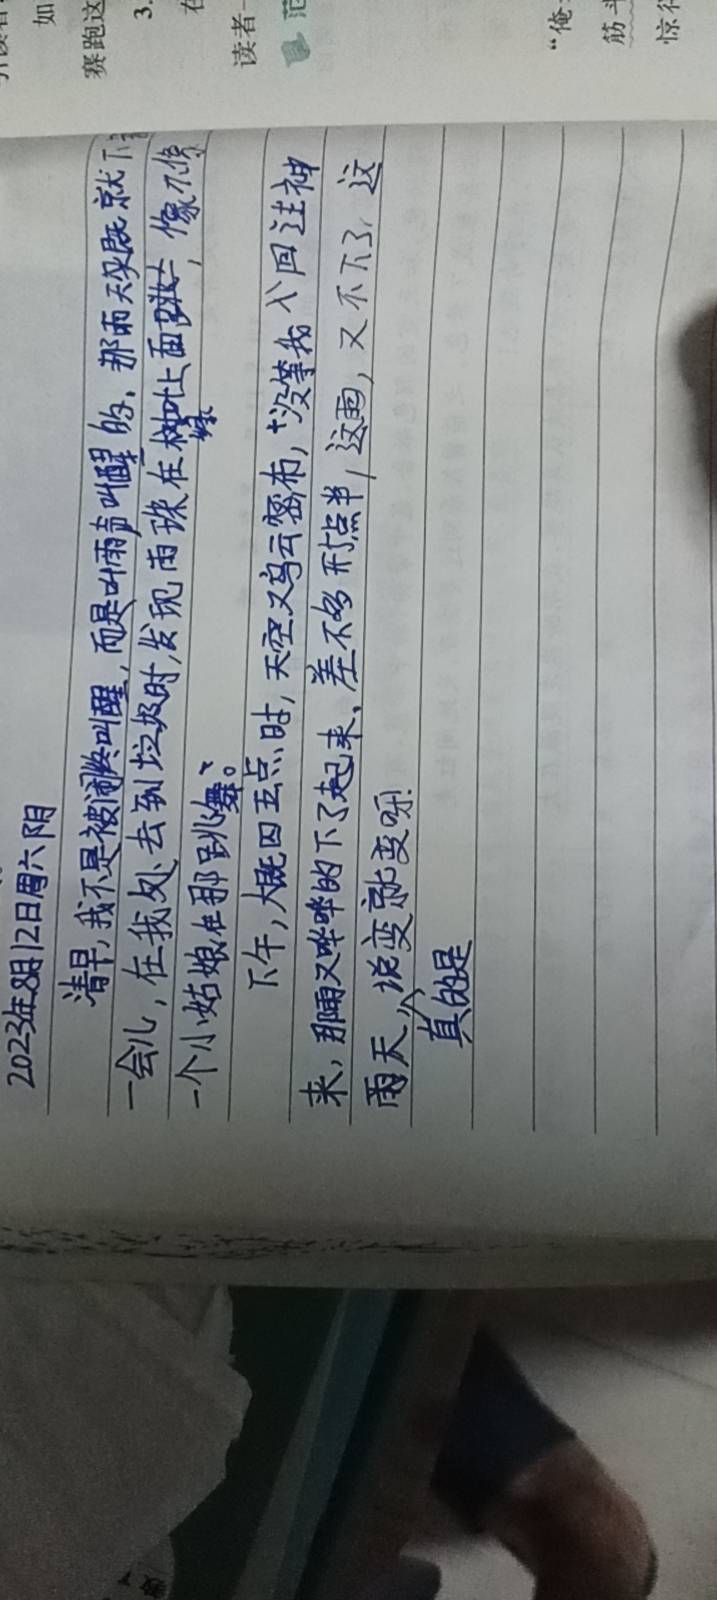 如
赛跑这
3.
在
读者一
范
"俺
筋斗
惊
2023年8月12日周六阴
清早,我不是被闹终叫醒,而是叫雨声叫醒的,那雨天气既就下
一会儿,在我处去到垃圾时,发现雨珠在树叶上面跳,像不像
一个小姑娘在那跳舞。
下午,大概四五点时,天空又乌云密布,没等我回过神
来,那雨又哗哗的下了起来,差不多五点半,这雨,又不下了,这
雨天,真的是说变就变呀!